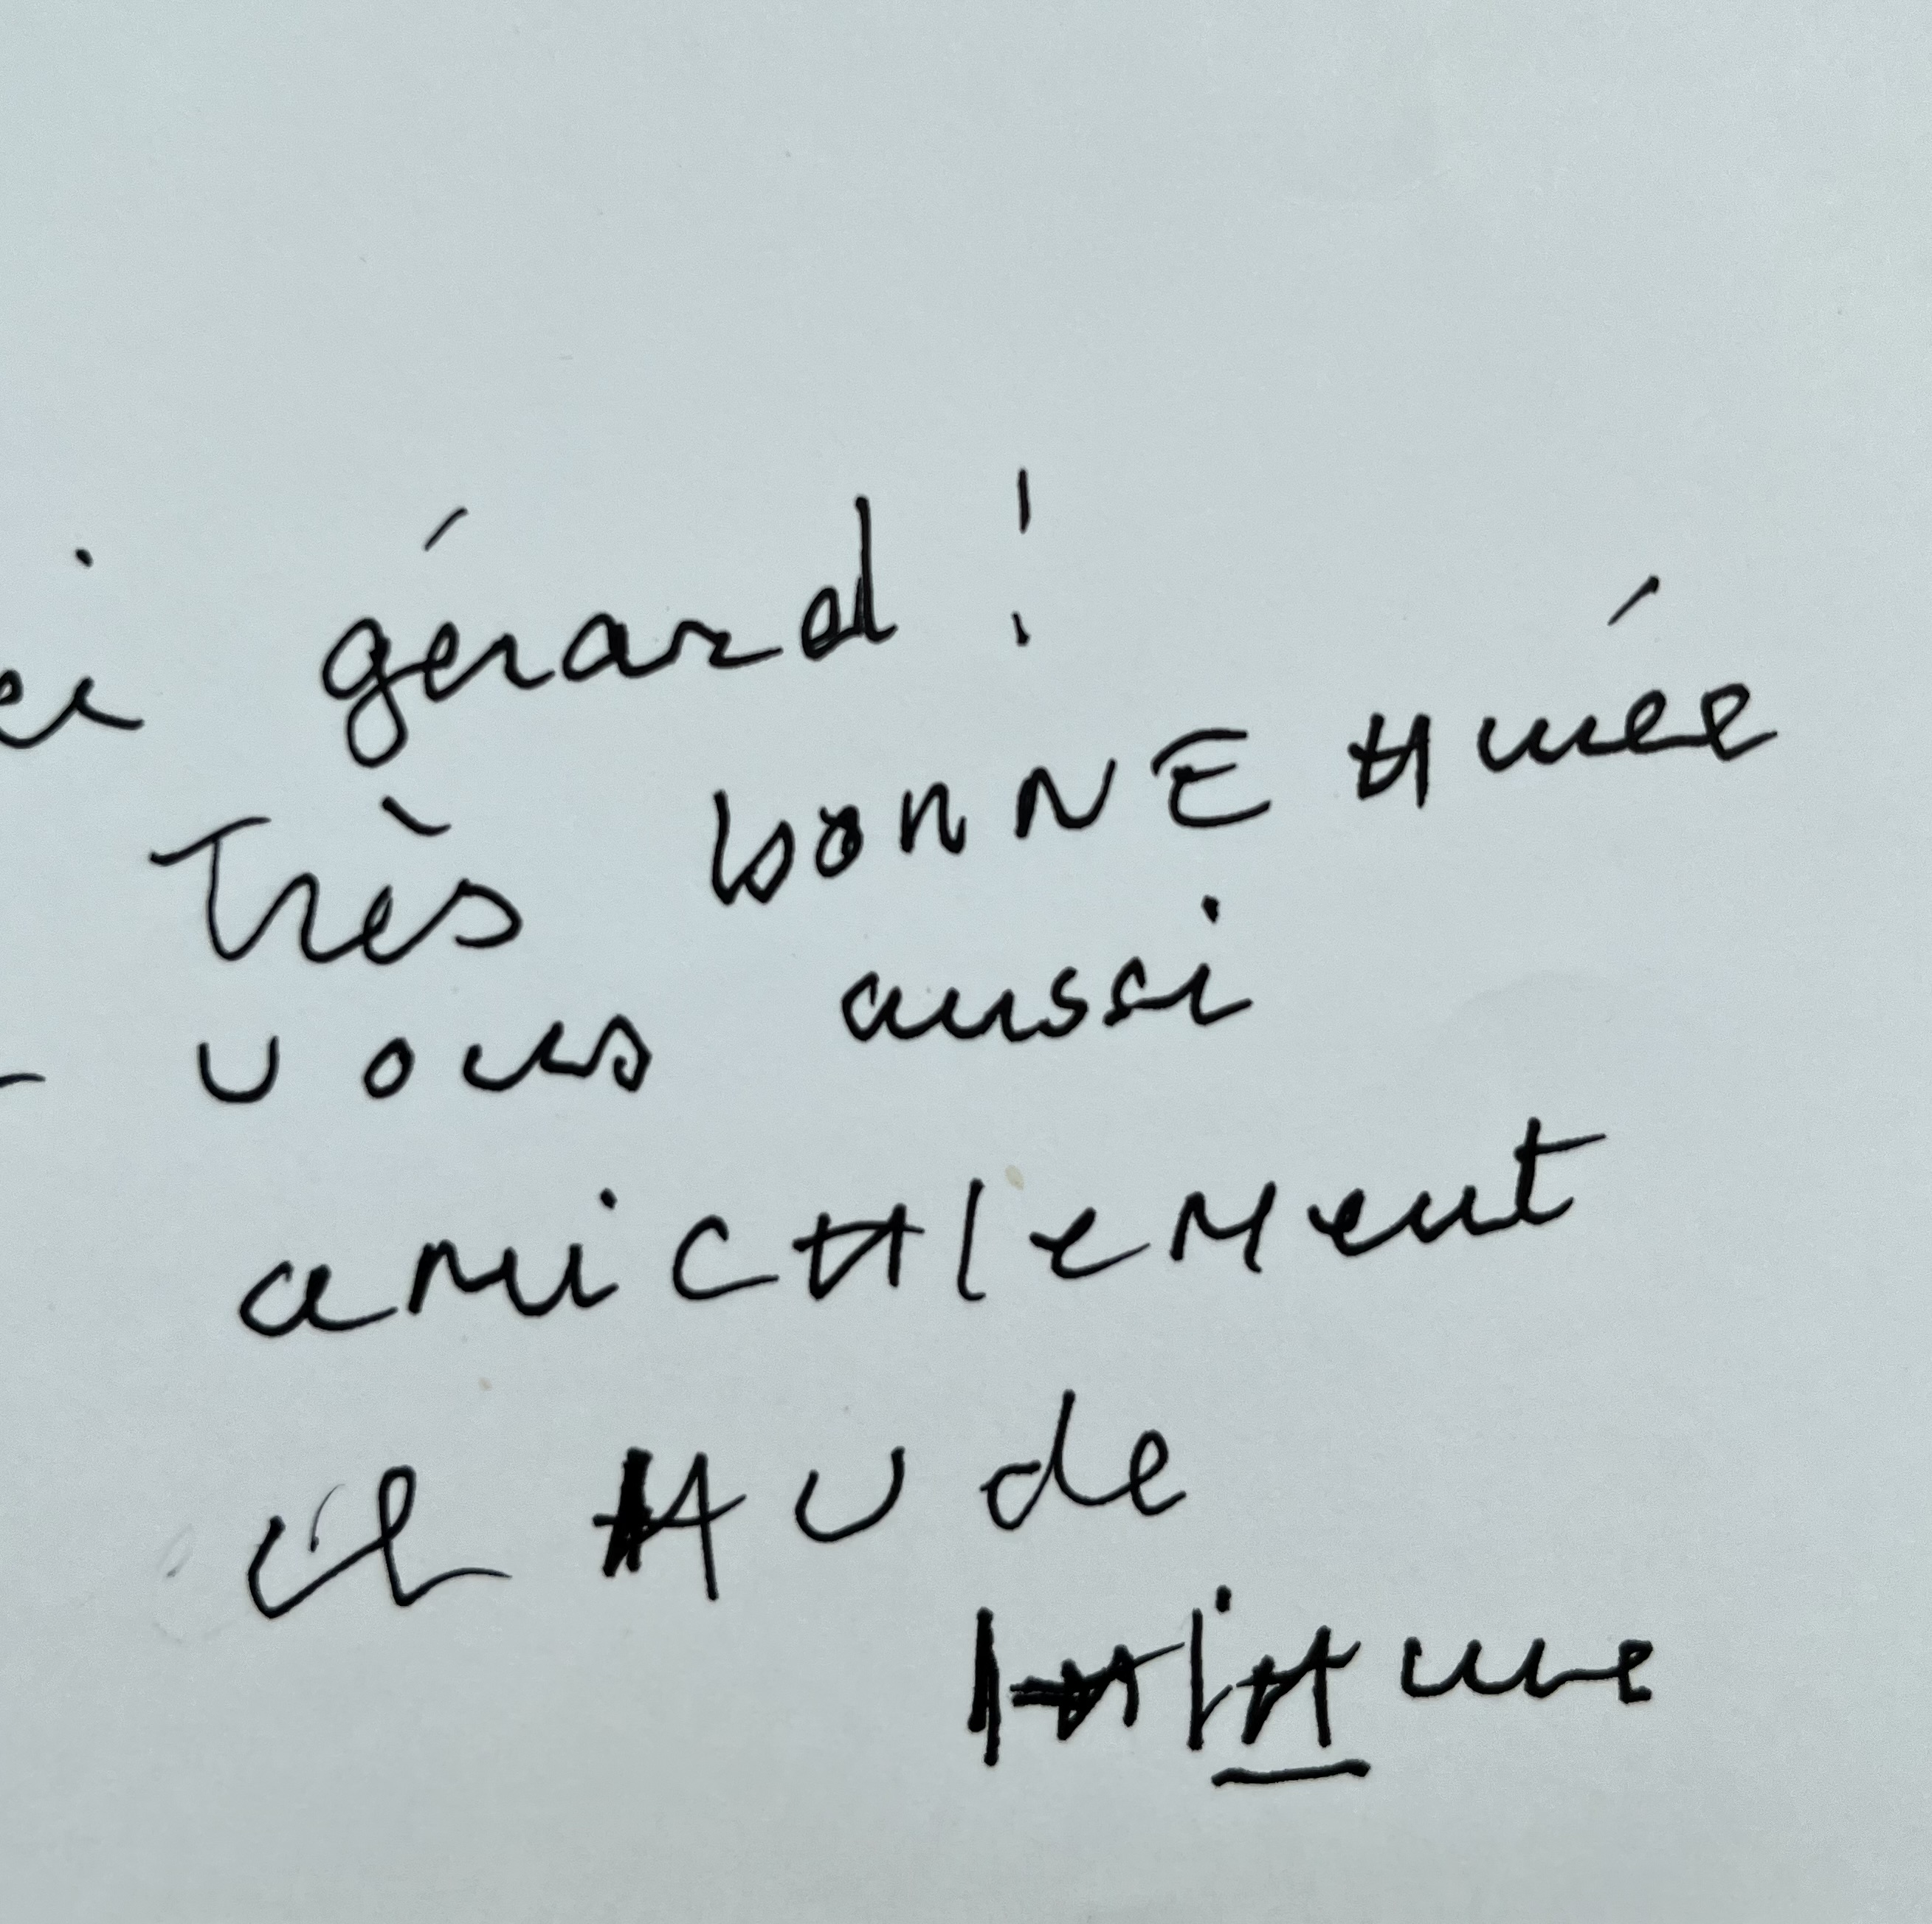 ci gérard !
Très bonNE Année
vous aussi
amicAleMent
clAUde